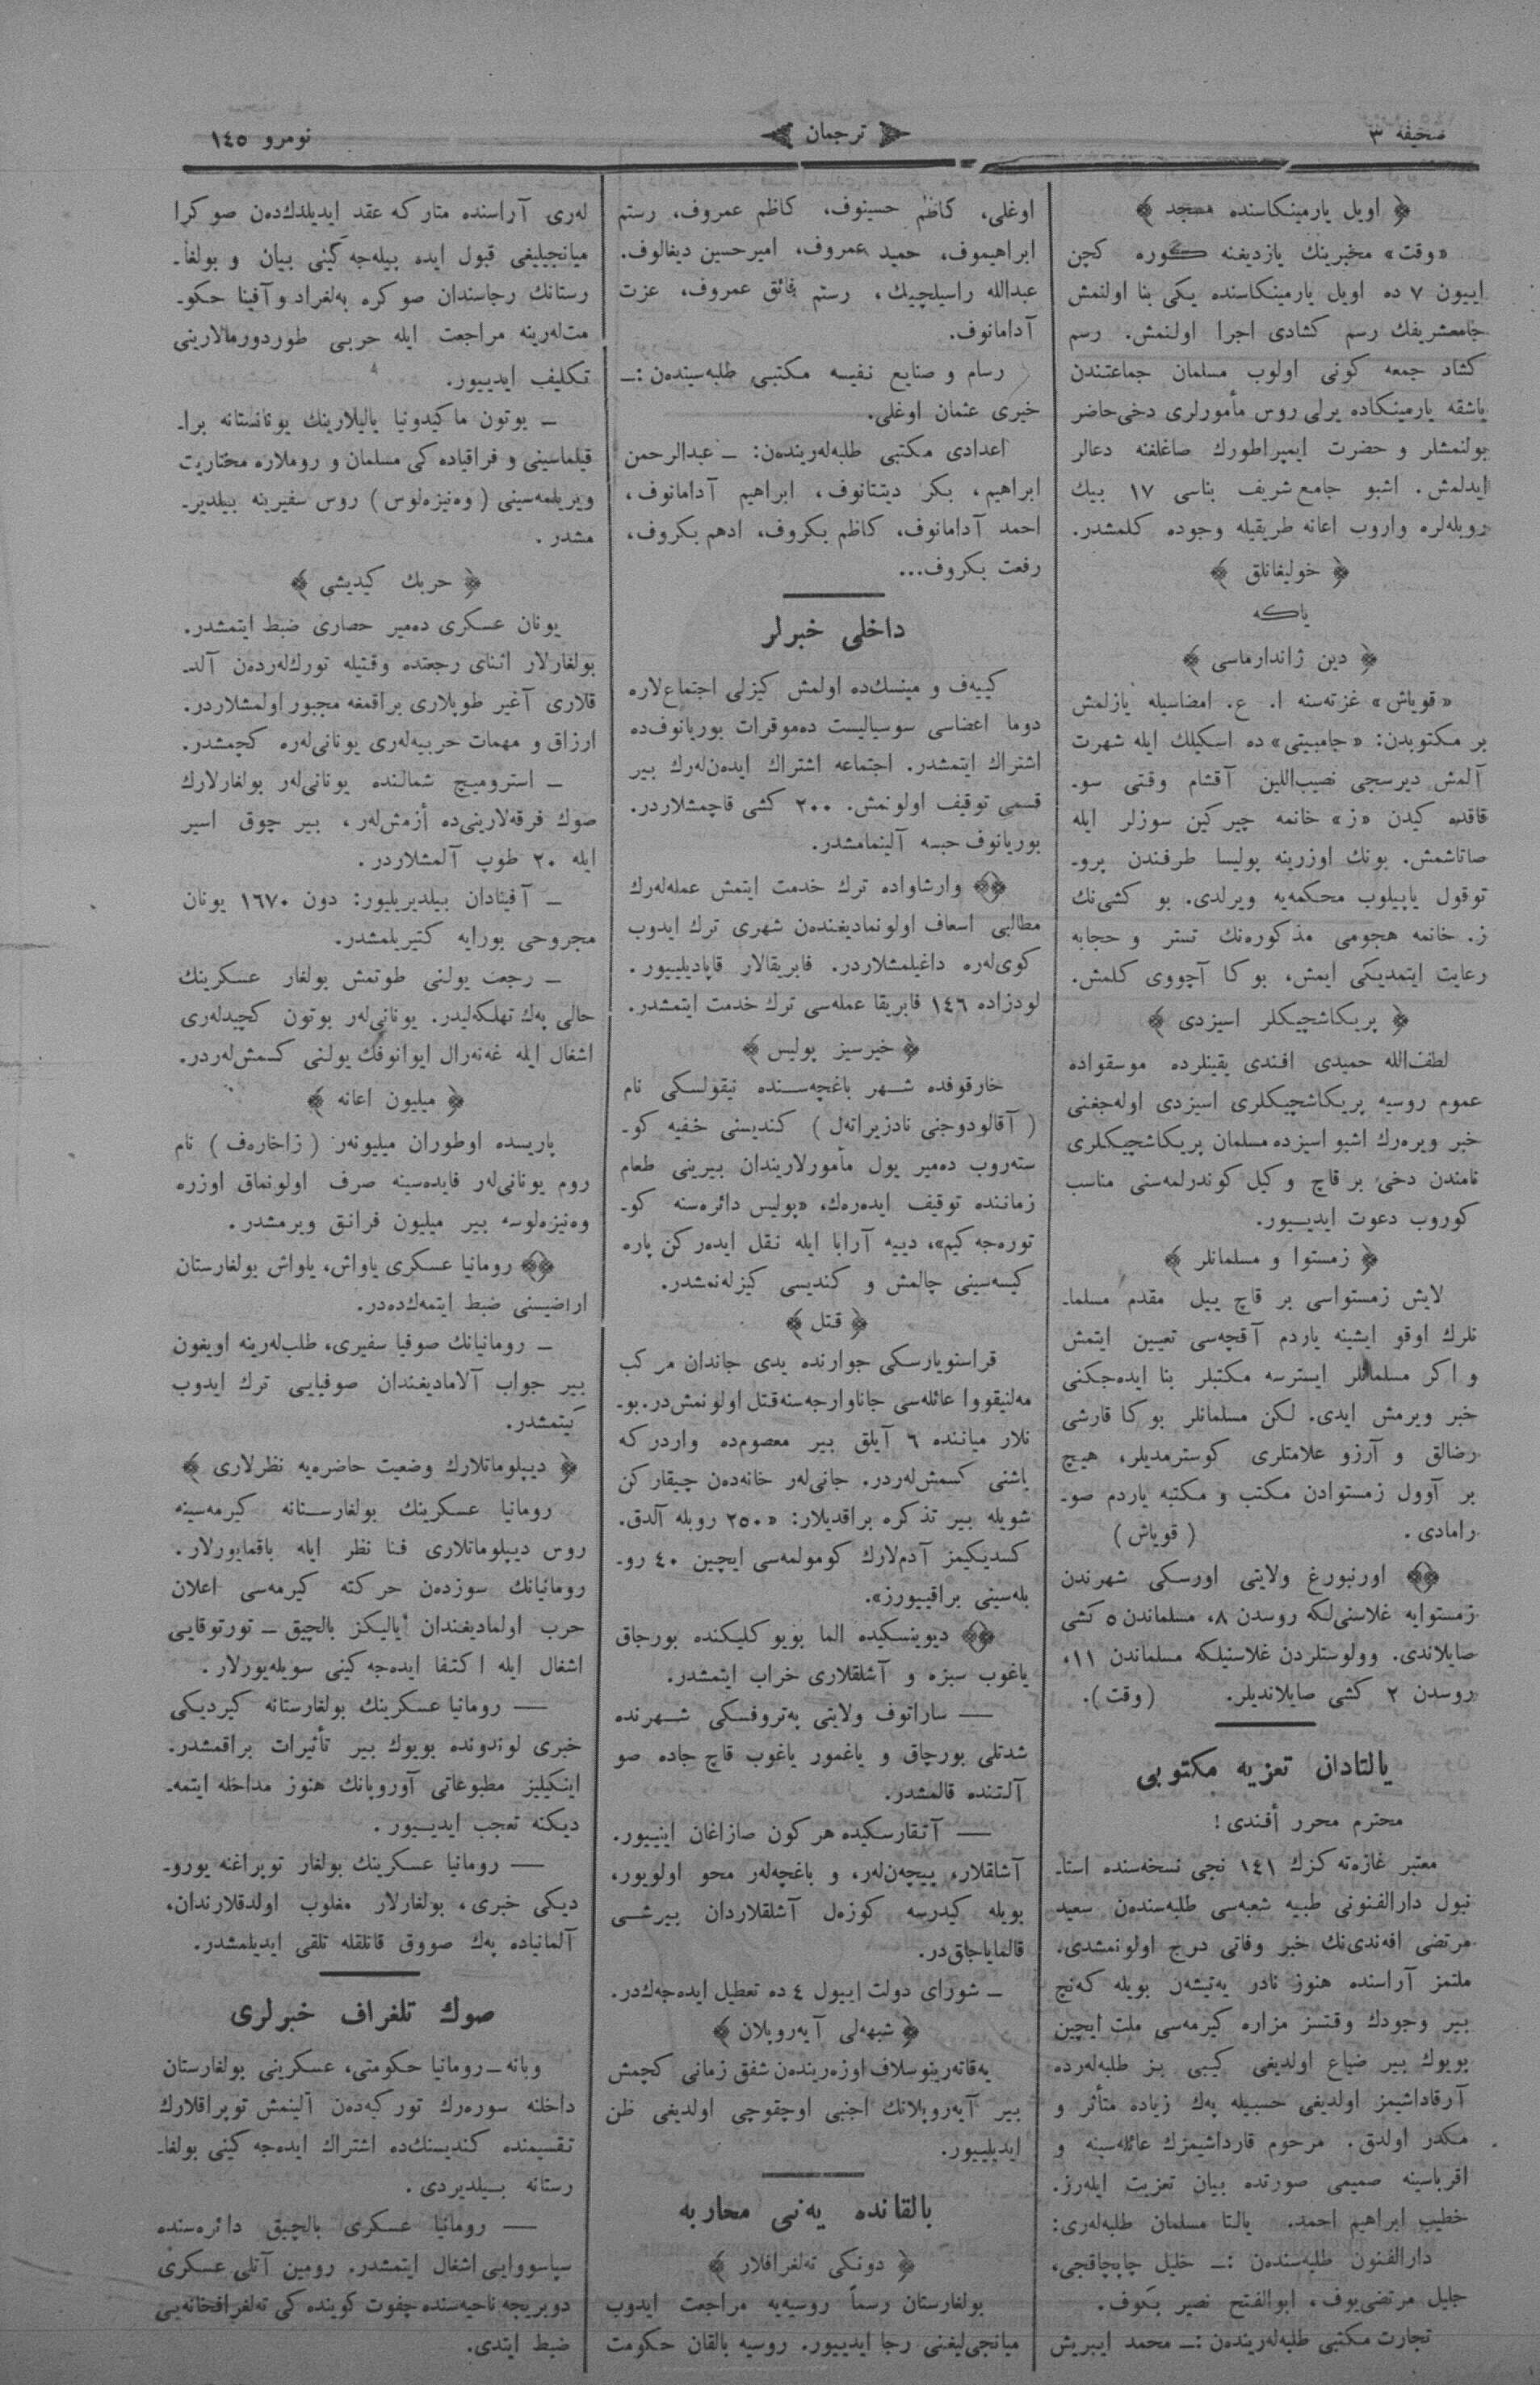 صحیفه ٣
ترجمان
نومرو ١٤٥
اویل یارمینکاسنده مسجد
«وقت» مخبرینك یازدیغنه گوره كچن
اییون ٧ ده اویل یارمینکاسنده یکی بنا اولنمش
جامعشریفك رسم کشادی اجرا اولنمش. رسم
کشاد جمعه کونی اولوب مسلمان جماعتندن
باشقه یارمینکاده یرلی روس مأمورلری دخی حاضر
بولنمشلر و حضرت ایمپراطورك صاغلغنه دعالر
ایدلمش. اشبو جامع شریف بناسی ١٧ بیك
روبله‌لره واروب اعانه طریقیله وجوده کلمشدر.
خولیغانلق
یاکه
دین ژاندارماسی
«قویاش» غزته‌سنه ا. ع. امضاسیله یازلمش
بر مکتوبدن: «جامبیتی» ده اسکیلك ایله شهرت
آلمش دیرسجی نصیب‌اللین آقشام وقتی سو-
قاقده کیدن «ز» خانمه چیرکین سوزلر ایله
صاتاشمش. بونك اوزرینه پولیسا طرفندن پرو-
توقول یاپیلوب محکمه‌یه ویرلدی. بو کشی‌نك
ز. خانمه هجومی مذکوره‌نك تستر و حجابه
رعایت ایتمدیکی ایمش، بوکا آچووی کلمش.
پریکاشچیکلر اسیزدی
لطف‌الله حمیدی افندی یقینلرده موسقواده
عموم روسیه پریکاشچیکلری اسیزدی اوله‌جغنی
خبر ویره‌رك اشبو اسیزده مسلمان پریکاشچیکلری
نامندن دخی بر قاچ وکیل کوندرلمه‌سنی مناسب
کوروب دعوت ایدییور.
زمستوا و مسلمانلر
لایش زمستواسی بر قاچ ییل مقدم مسلما-
نلرك اوقو ایشینه یاردم آقچه‌سی تعیین ایتمش
و اکر مسلمانلر ایسترسه مکتبلر بنا ایده‌جکنی
خبر ویرمش ایدی. لکن مسلمانلر بوکا قارشی
رضالق و آرزو علامتلری کوسترمدیلر، هیچ
بر آوول زمستوادن مکتب و مکتبه یاردم صو-
رامادی. (قویاش)
اورنبورغ ولایتی اورسکی شهرندن
زمستوایه غلاسنی‌لکه روسدن ٨، مسلماندن ٥ کشی
صایلاندی. وولوستلردن غلاسنیلکه مسلماندن ١١،
روسدن ٢ کشی صایلاندیلر. (وقت).
یالتادان تعزیه مکتوبی
محترم محرر أفندی!
معتبر غازه‌ته‌کزك ١٤١ نجی نسخه‌سنده استا-
نبول دارالفنونی طبیه شعبه‌سی طلبه‌سندن سعید
مرتضی افه‌ندی‌نك خبر وفاتی درج اولونمشدی.
ملتمز آراسنده هنوز نادر یه‌تیشه‌ن بویله که‌نج
بیر وجودك وقتسز مزاره کیرمه‌سی ملت ایچین
بویوك بیر ضیاع اولدیغی کیبی بز طلبه‌لرده
آرقاداشیمز اولدیغی حسبیله په‌ك زیاده متأثر و
مکدر اولدق. مرحوم قارداشیمزك عائله‌سینه و
اقرباسینه صمیمی صورتده بیان تعزیت ایله‌رز.
خطیب ابراهیم احمد. یالتا مسلمان طلبه‌لری:
دارالفنون طلبه‌سندن :— خلیل چاپچاقجی،
جلیل مرتضی‌یوف، ابوالفتح نصیر بکوف.
تجارت مکتبی طلبه‌له‌ریندن :— محمد ایبریش
اوغلی، کاظم حسینوف، کاظم عمروف، رستم
ابراهیموف، حمید عمروف، امیرحسین دیغالوف.
عبدالله راسیلچیك، رستم فائق عمروف، عزت
آدامانوف.
رسام و صنایع نفیسه مکتبی طلبه‌سیندن :—
خیری عثمان اوغلی.
اعدادی مکتبی طلبه‌له‌ریندن: — عبدالرحمن
ابراهیم، بکر دیتتانوف، ابراهیم آدامانوف،
احمد آدامانوف، کاظم بکروف، ادهم بکروف،
رفعت بکروف...
داخلی خبرلر
کییه‌ف و مینسك‌ده اولمش کیزلی اجتماع‌لاره
دوما اعضاسی سوسیالیست ده‌موقرات بوریانوف‌ده
اشتراك ایتمشدر. اجتماعه اشتراك ایده‌ن‌له‌رك بیر
قسمی توقیف اولونمش. ٢٠٠ کشی قاچمشلاردر.
بوریانوف حبسه آلینمامشدر.
وارشاواده ترك خدمت ایتمش عمله‌له‌رك
مطالبی اسعاف اولونمادیغندن شهری ترك ایدوب
کوی‌له‌ره داغیلمشلاردر. فابریقالار قاپادیلییور.
لودزاده ١٤٦ فابریقا عمله‌سی ترك خدمت ایتمشدر.
خیرسیز پولیس
خارقوفده شهر باغچه‌سنده نیقولسکی نام
(آقالودوجنی نادزیراته‌ل) کندیسنی خفیه کو-
سته‌روب ده‌میر یول مأمورلاریندان بیرینی طعام
زماننده توقیف ایده‌ره‌ك، «پولیس دائره‌سنه کو-
توره‌جه‌کیم»، دییه آرابا ایله نقل ایده‌رکن پاره
کیسه‌سینی چالمش و کندیسی کیزله‌نمشدر.
قتل
قراسنویارسکی جوارنده یدی جاندان مرکب
مه‌لنیقووا عائله‌سی جاناوارجه‌سنه قتل اولونمش‌در. بو-
نلار میاننده ٦ آیلق بیر معصوم‌ده واردر که
باشنی کسمش‌له‌ردر. جانی‌له‌ر خانه‌ده‌ن چیقارکن
شویله بیر تذکره براقدیلار: «٢٥٠ روبله آلدق.
کسدیکیمز آدم‌لارك کومولمه‌سی ایچین ٤٠ رو-
بله‌سینی براقییورز».
دیوینسکیده الما بویوکلیکنده بورچاق
یاغوب سبزه و آشلقلاری خراب ایتمشدر.
— ساراتوف ولایتی په‌تروفسکی شهرنده
شدتلی بورچاق و یاغمور یاغوب قاچ جاده صو
آلتنده قالمشدر.
— آتقارسکیده هر کون صازاغان اینییور.
آشلقلار، پیچه‌ن‌له‌ر، و باغچه‌له‌ر محو اولویور،
بویله کیدرسه کوزه‌ل آشلقلاردان بیرشی
قالمایاجاق‌در.
— شورای دولت اییول ٤ ده تعطیل ایده‌جه‌ك‌در.
شبهه‌لی آیه‌روپلان
یه‌قاته‌رینوسلاف اوزه‌رینده‌ن شفق زمانی کچمش
بیر آیه‌روپلانك اجنبی اوچقوچی اولدیغی ظن
ایدیلییور.
بالقانده یه‌نی محاربه
دونکی ته‌لغرافلار
بولغارستان رسماً روسیه‌یه مراجعت ایدوب
میانجی‌لیغنی رجا ایدییور. روسیه بالقان حکومت
له‌ری آراسنده متارکه عقد ایدیلدك‌ده‌ن صوکرا
میانجیلیغی قبول ایده بیله‌جه‌گینی بیان و بولغا-
رستانك رجاسندان صوکره به‌لغراد و آفینا حکو-
مت‌له‌رینه مراجعت ایله حربی طوردورمالارینی
تکلیف ایدییور.
— بوتون ماکیدونیا یالیلارینك یونانستانه برا-
قیلماسینی و فراقیاده‌کی مسلمان و روملاره مختاریت
ویریلمه‌سینی (وه‌نیزه‌لوس) روس سفیرینه بیلدیر-
مشدر.
حربك کیدیشی
یونان عسکری ده‌میر حصاری ضبط ایتمشدر.
بولغارلار اثنای رجعتده وقتیله تورك‌له‌رده‌ن آلد-
قلاری آغیر طوپلاری براقمغه مجبور اولمشلاردر.
ارزاق و مهمات حربیه‌له‌ری یونانی‌له‌ره کچمشدر.
— استرومیچ شمالنده یونانی‌له‌ر بولغارلارك
صوك فرقه‌لارینی‌ده أزمش‌له‌ر، بیر چوق اسیر
ایله ٢٠ طوپ آلمشلاردر.
— آفینادان بیلدیریلیور: دون ١٦٧٠ یونان
مجروحی بورایه کتیریلمشدر.
— رجعت یولنی طوتمش بولغار عسکرینك
حالی په‌ك تهلکه‌لیدر. یونانی‌له‌ر بوتون کچیدله‌ری
اشغال ایله غه‌نه‌رال ایوانوفك یولنی کسمش‌له‌ردر.
میلیون اعانه
پاریسده اوطوران میلیونه‌ر (زاخاره‌ف) نام
روم یونانی‌له‌ر فایده‌سینه صرف اولونماق اوزره
وه‌نیزه‌لوسه بیر میلیون فرانق ویرمشدر.
رومانیا عسکری یاواش، یاواش بولغارستان
اراضیسنی ضبط ایتمه‌ك‌ده‌در.
— رومانیانك صوفیا سفیری، طلب‌له‌رینه اویغون
بیر جواب آلامادیغندان صوفیایی ترك ایدوب
کیتمشدر.
دیپلوماتلارك وضعیت حاضره‌یه نظرلاری
رومانیا عسکرینك بولغارستانه کیرمه‌سینه
روس دیپلوماتلاری فنا نظر ایله باقمایورلار.
رومانیانك سوزده‌ن حرکته کیرمه‌سی اعلان
حرب اولمادیغندان یالیکز بالچیق — تورتوقایی
اشغال ایله اکتفا ایده‌جه‌کینی سویله‌یورلار.
— رومانیا عسکرینك بولغارستانه کیردیکی
خبری لوندونده بویوك بیر تأثیرات براقمشدر.
اینکیلیز مطبوعاتی آوروپانك هنوز مداخله ایتمه-
دیکنه تعجب ایدییور.
— رومانیا عسکرینك بولغار توپراغنه یورو-
دیکی خبری، بولغارلار مغلوب اولدقلارندان،
آلمانیاده په‌ك صووق قانلقله تلقی ایدیلمشدر.
صوك تلغراف خبرلری
ویانه — رومانیا حکومتی، عسکرینی بولغارستان
داخلنه سوره‌رك تورکیه‌ده‌ن آلینمش توپراقلارك
تقسیمنده کندیسنك‌ده اشتراك ایده‌جه‌کینی بولغا-
رستانه بیلدیردی.
— رومانیا عسکری بالچیق دائره‌سنده
سپاسووایی اشغال ایتمشدر. رومین آتلی عسکری
دوبریجه ناحیه‌سنده چفوت کوینده‌کی ته‌لغرافخانه‌یی
ضبط ایتدی.